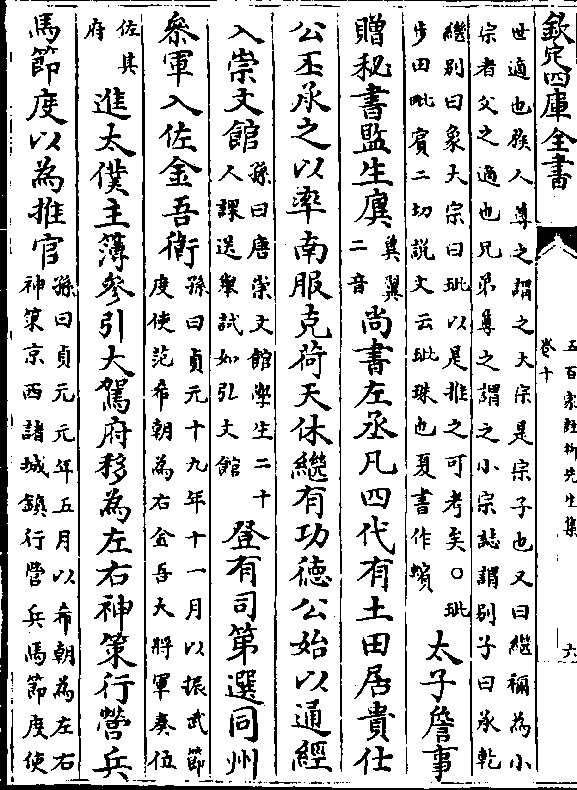 欽定四庫全書
世適也族人尊之謂之大宗是宗子也又曰繼禰為小
宗者父之適也兄弟尊之謂之小宗誌謂别子曰承乾
繼别曰象大宗曰玭以是推之可考矣○玭
步田毗賓二切説文云玭珠也夏書作蠙
太子詹事
贈秘書監生廙
異翼
二音
尚書左丞凡四代有土田居貴仕
公丕承之以率南服克荷天休繼有功德公始以通經
入崇文館
孫曰唐崇文館學生二十
人課送舉試如弘文館
登有司第選同州
叅軍入佐金吾衛
孫曰貞元十九年十一月以振武節
度使范希朝為右金吾大將軍奏位
佐其
府
進太僕主簿參引大駕府移為左右神策行營兵
馬節度以為推官
孫曰貞元元年五月以希朝為左右
神策京西諸城鎮行營兵馬節度使
五百家註柳先生集
卷十
六